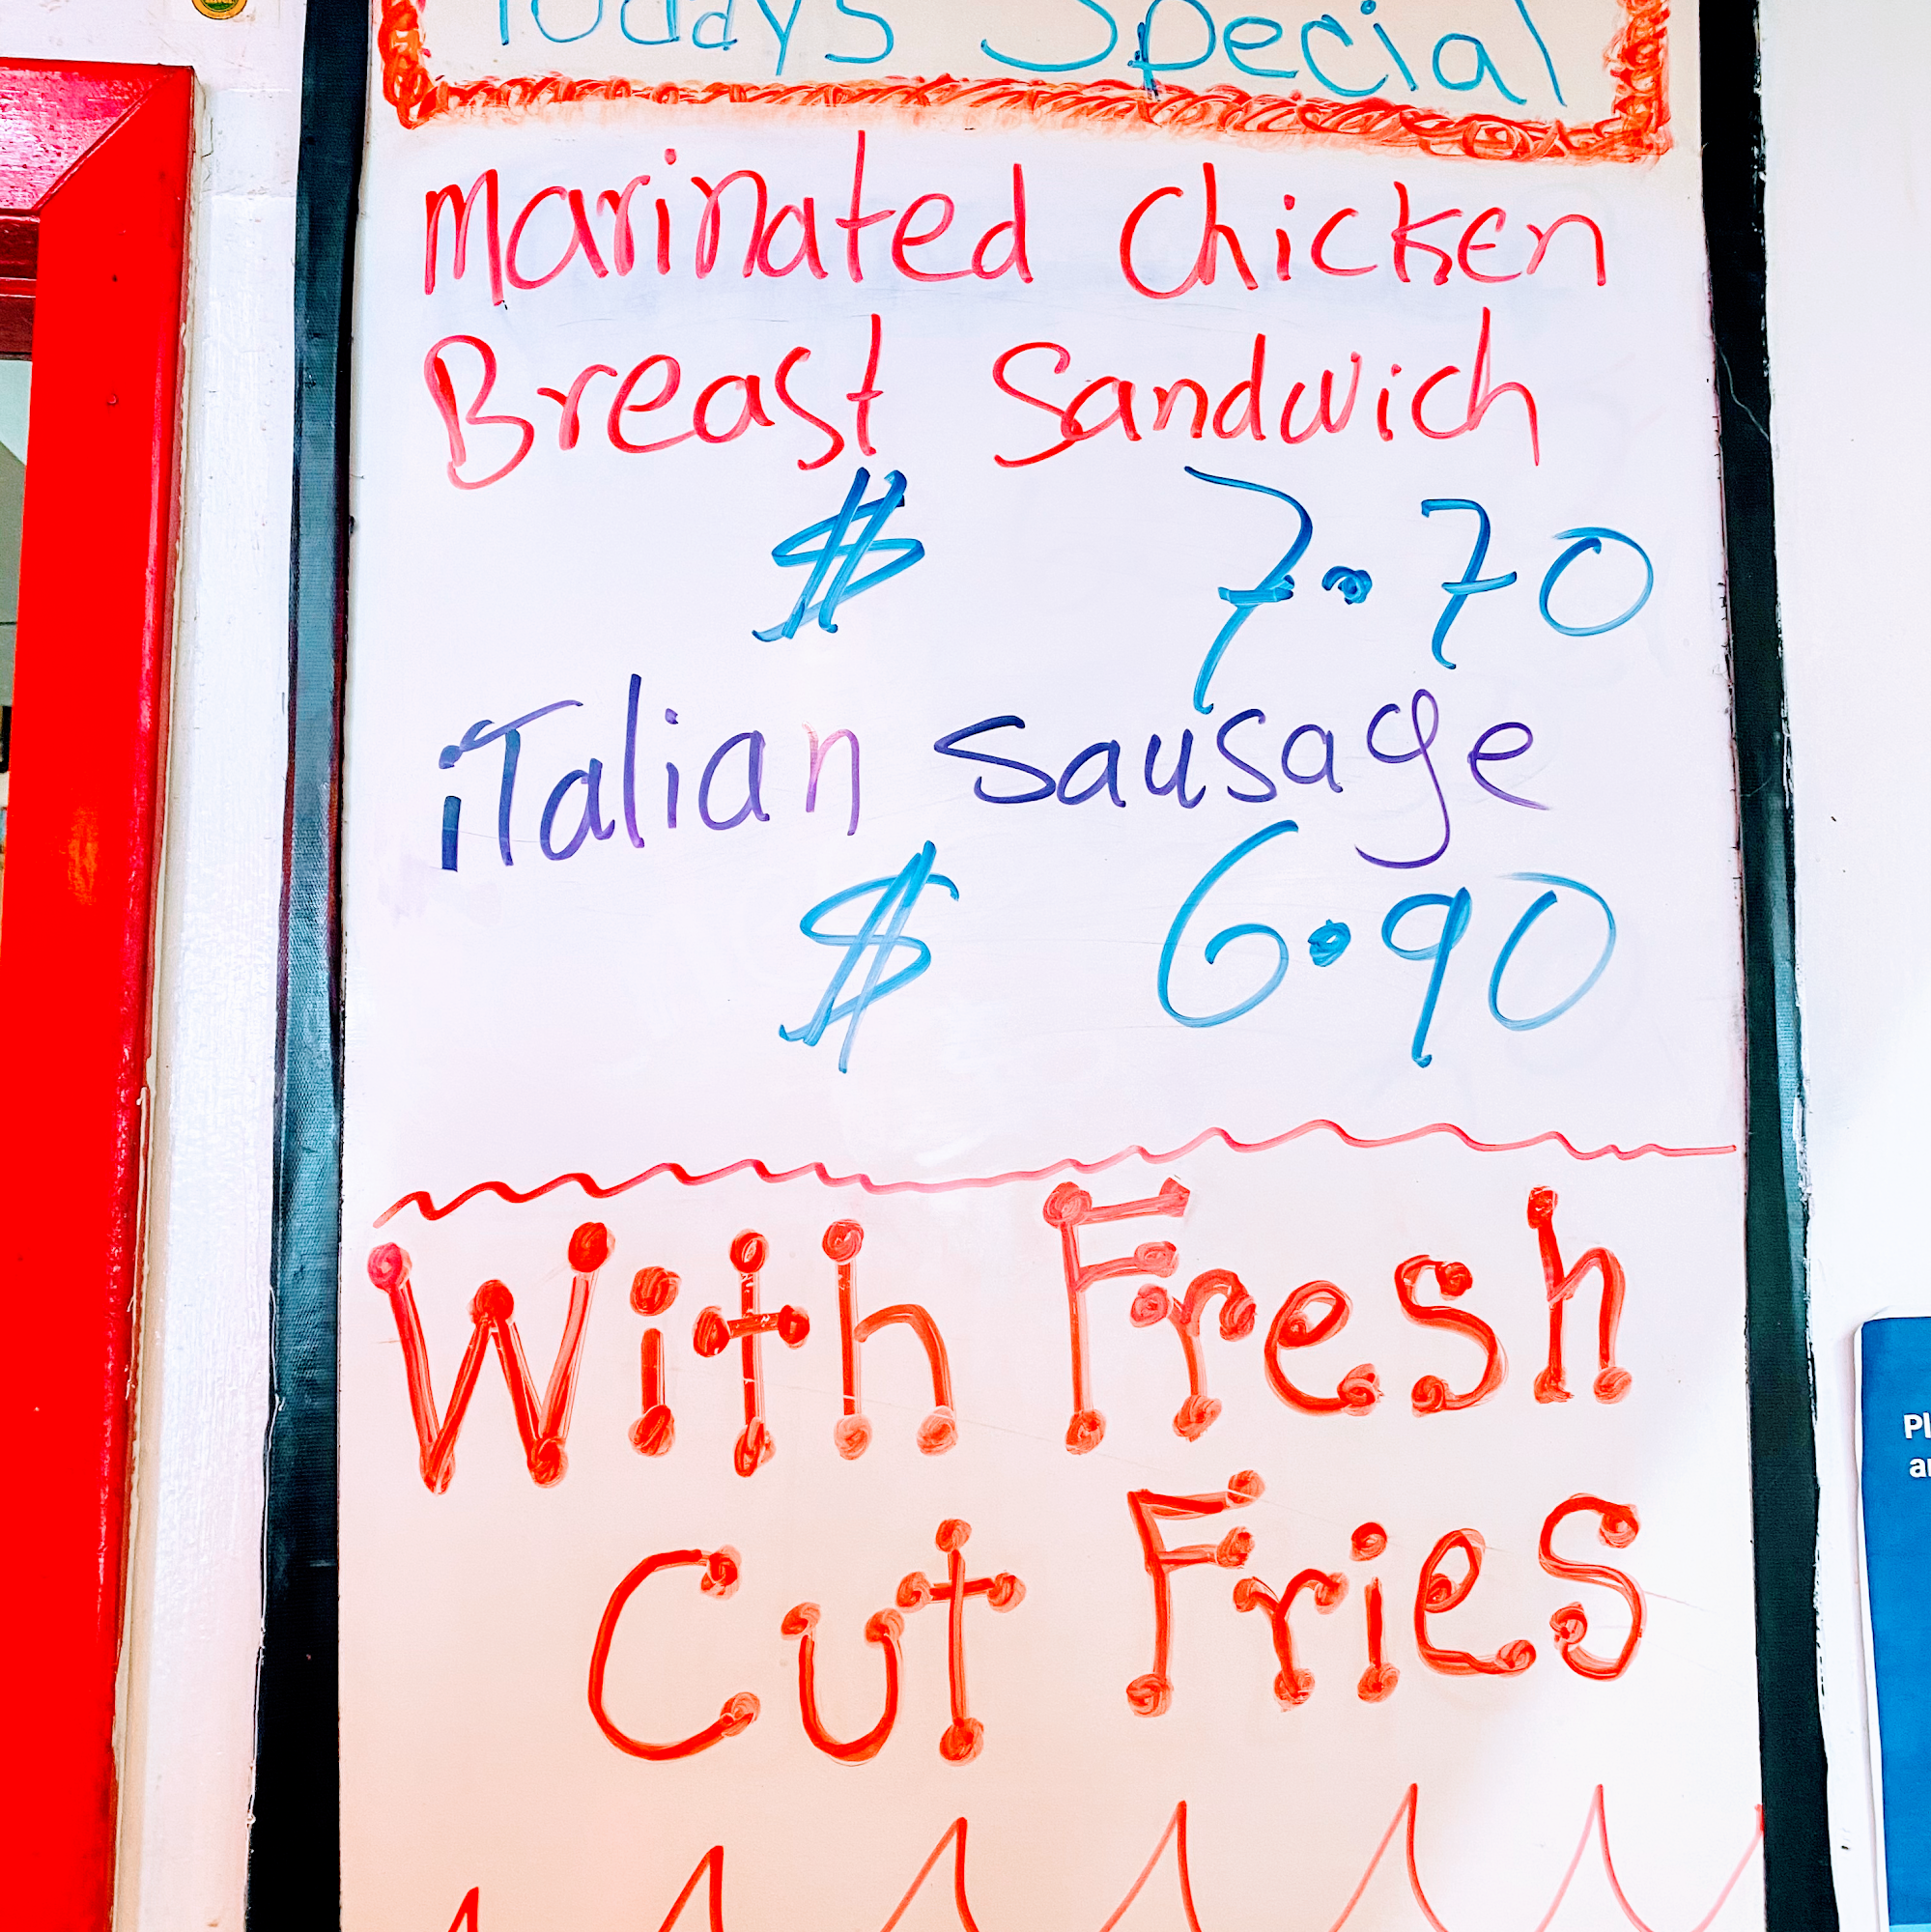 Todays Special
Marinated Chicken
Breast Sandwich
$ 7.70
iTalian Sausage
$ 6.90
With Fresh
Cut Fries